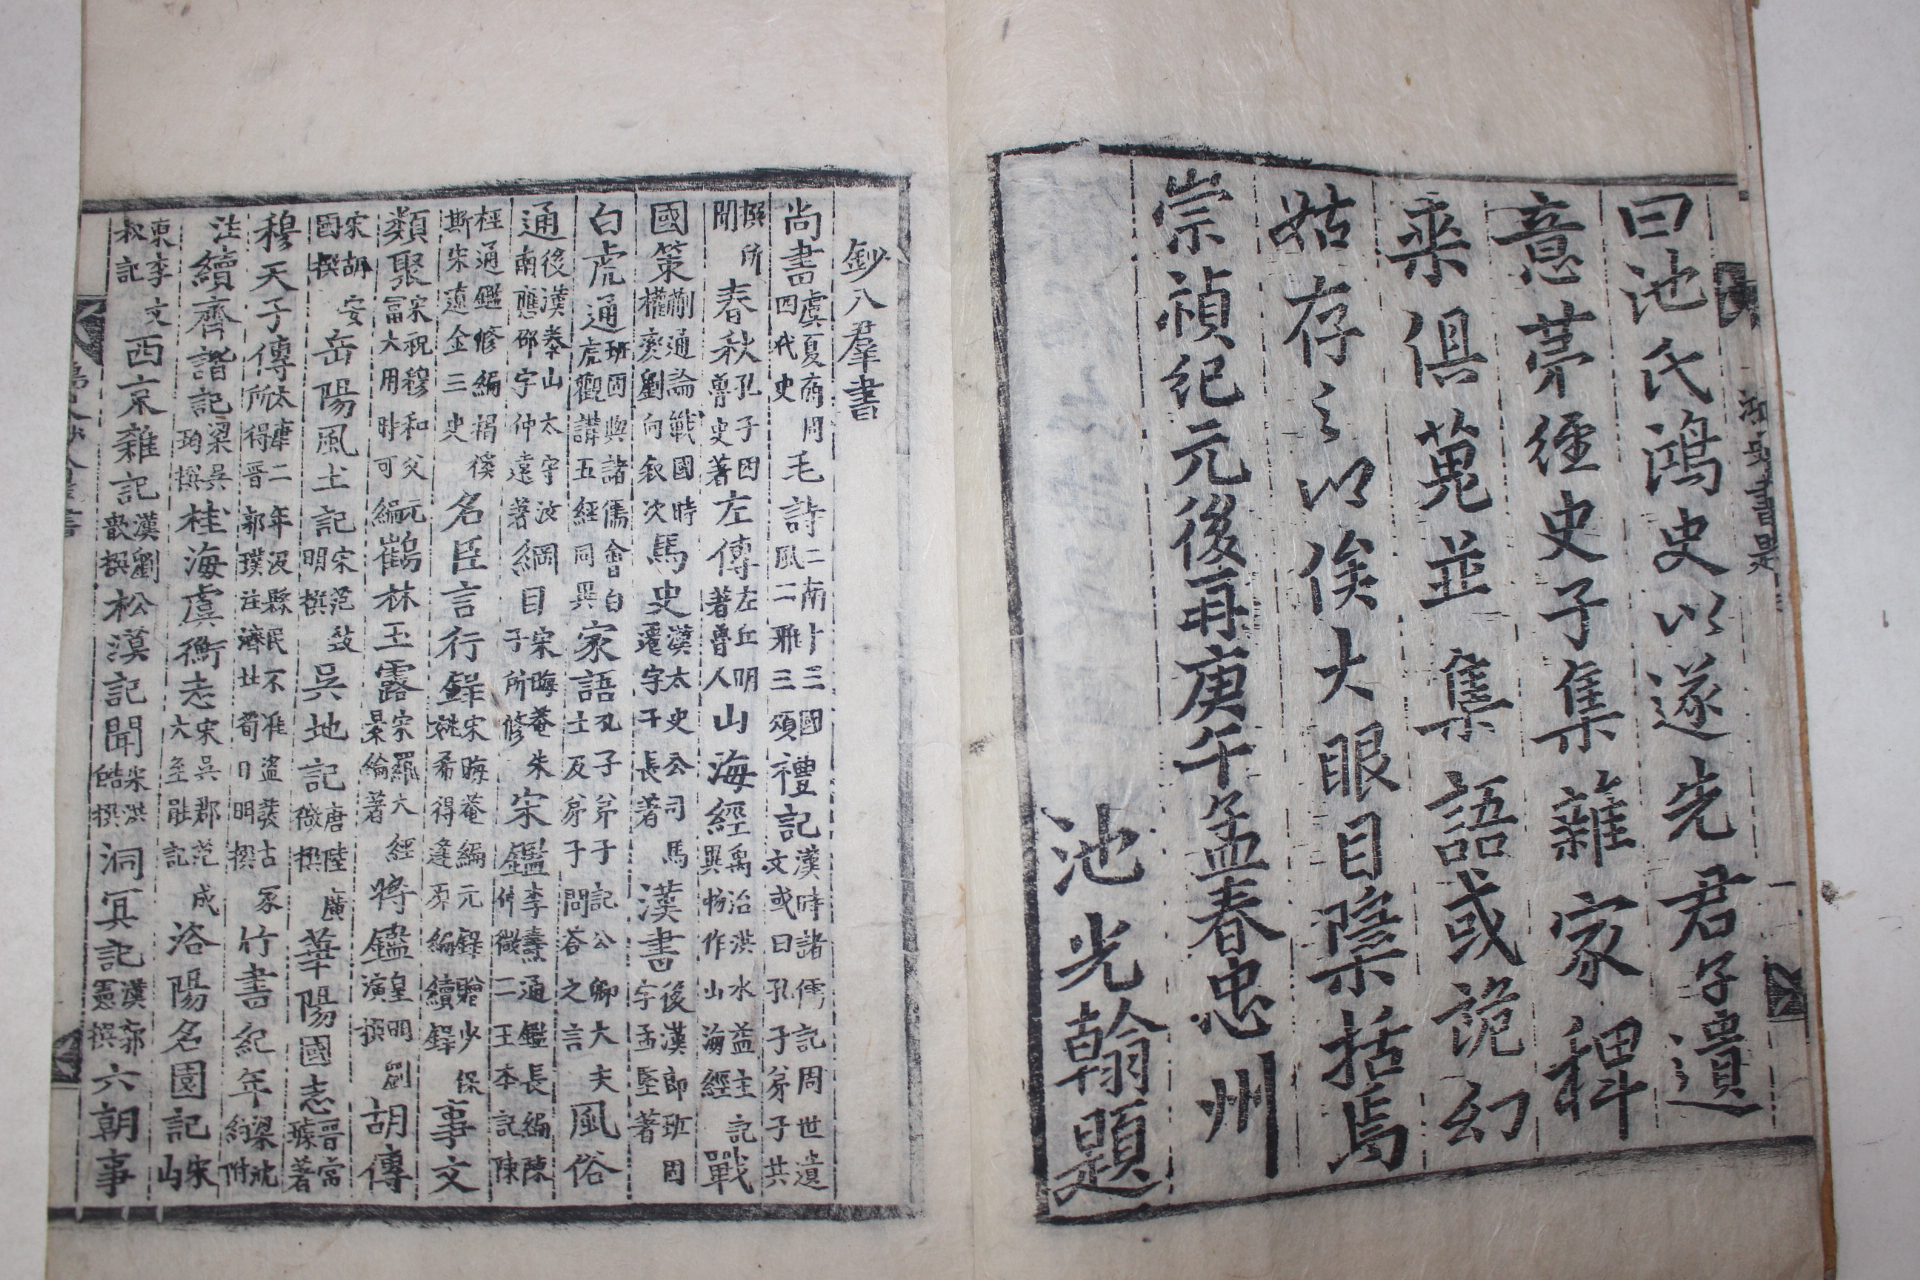 曰池氏鴻史以遂先君子遺
意茅經史子集雜家稗
乘俱蒐並集語或詭幻
姑存之以俟大眼目隱括焉
崇禎紀元後再庚午孟春忠州
池光翰題
鈔入羣書
尚書虞夏商周四代史毛詩二南十三國風二雅三頌禮記漢時諸儒記周世遺文或曰孔子弟子共
撰所聞春秋孔子因魯史著左傳左丘明魯人著山海經禹治洪水益主記異物作山海經戰
國策蒯通論戰國時權變劉向叙次馬史漢太史公司馬遷字子長著漢書後漢郎班固字孟堅著
白虎通班固與諸儒會白虎觀講五經同異家語孔子弟子記公卿大夫士及弟子問答之言風俗
通後漢泰山太守汝南應邵字仲遠著綱目宋晦菴朱子所修宋鑑李燾通鑑長編陳仲微二王本記陳
桱通鑑修編揭傒斯宋遼金三史名臣言行錄宋晦菴編元錄贈少保姚希得逢原編續錄事文
類聚宋祝穆和父元富大用時可編鶴林玉露宋羅大經景綸著將鑑皇明劉演撰胡傳
宋胡安國撰岳陽風土記宋范致明撰吳地記唐陸廣微撰華陽國志晋常璩著
穆天子傳太康二年汲縣民不准盜發古冢所得晋郭璞注濟北荀日明撰竹書紀年梁沈約附
注續齊諧記梁吳均撰桂海虞衡志宋吳郡范成大至能記洛陽名園記宋山
東李文叔記西京雜記漢劉歆撰松漠記聞宋洪皓撰洞冥記漢郭憲撰六朝事